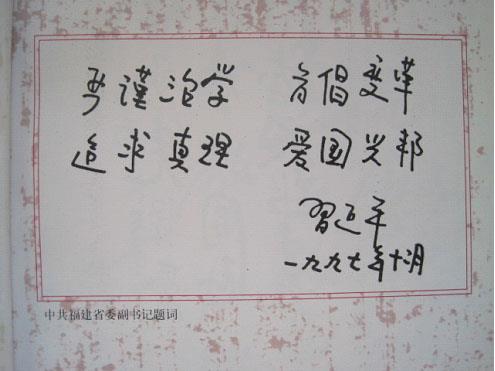 严谨治学 首倡变革
追求真理 爱国兴邦
習近平
一九九七年十月
中共福建省委副书记题词